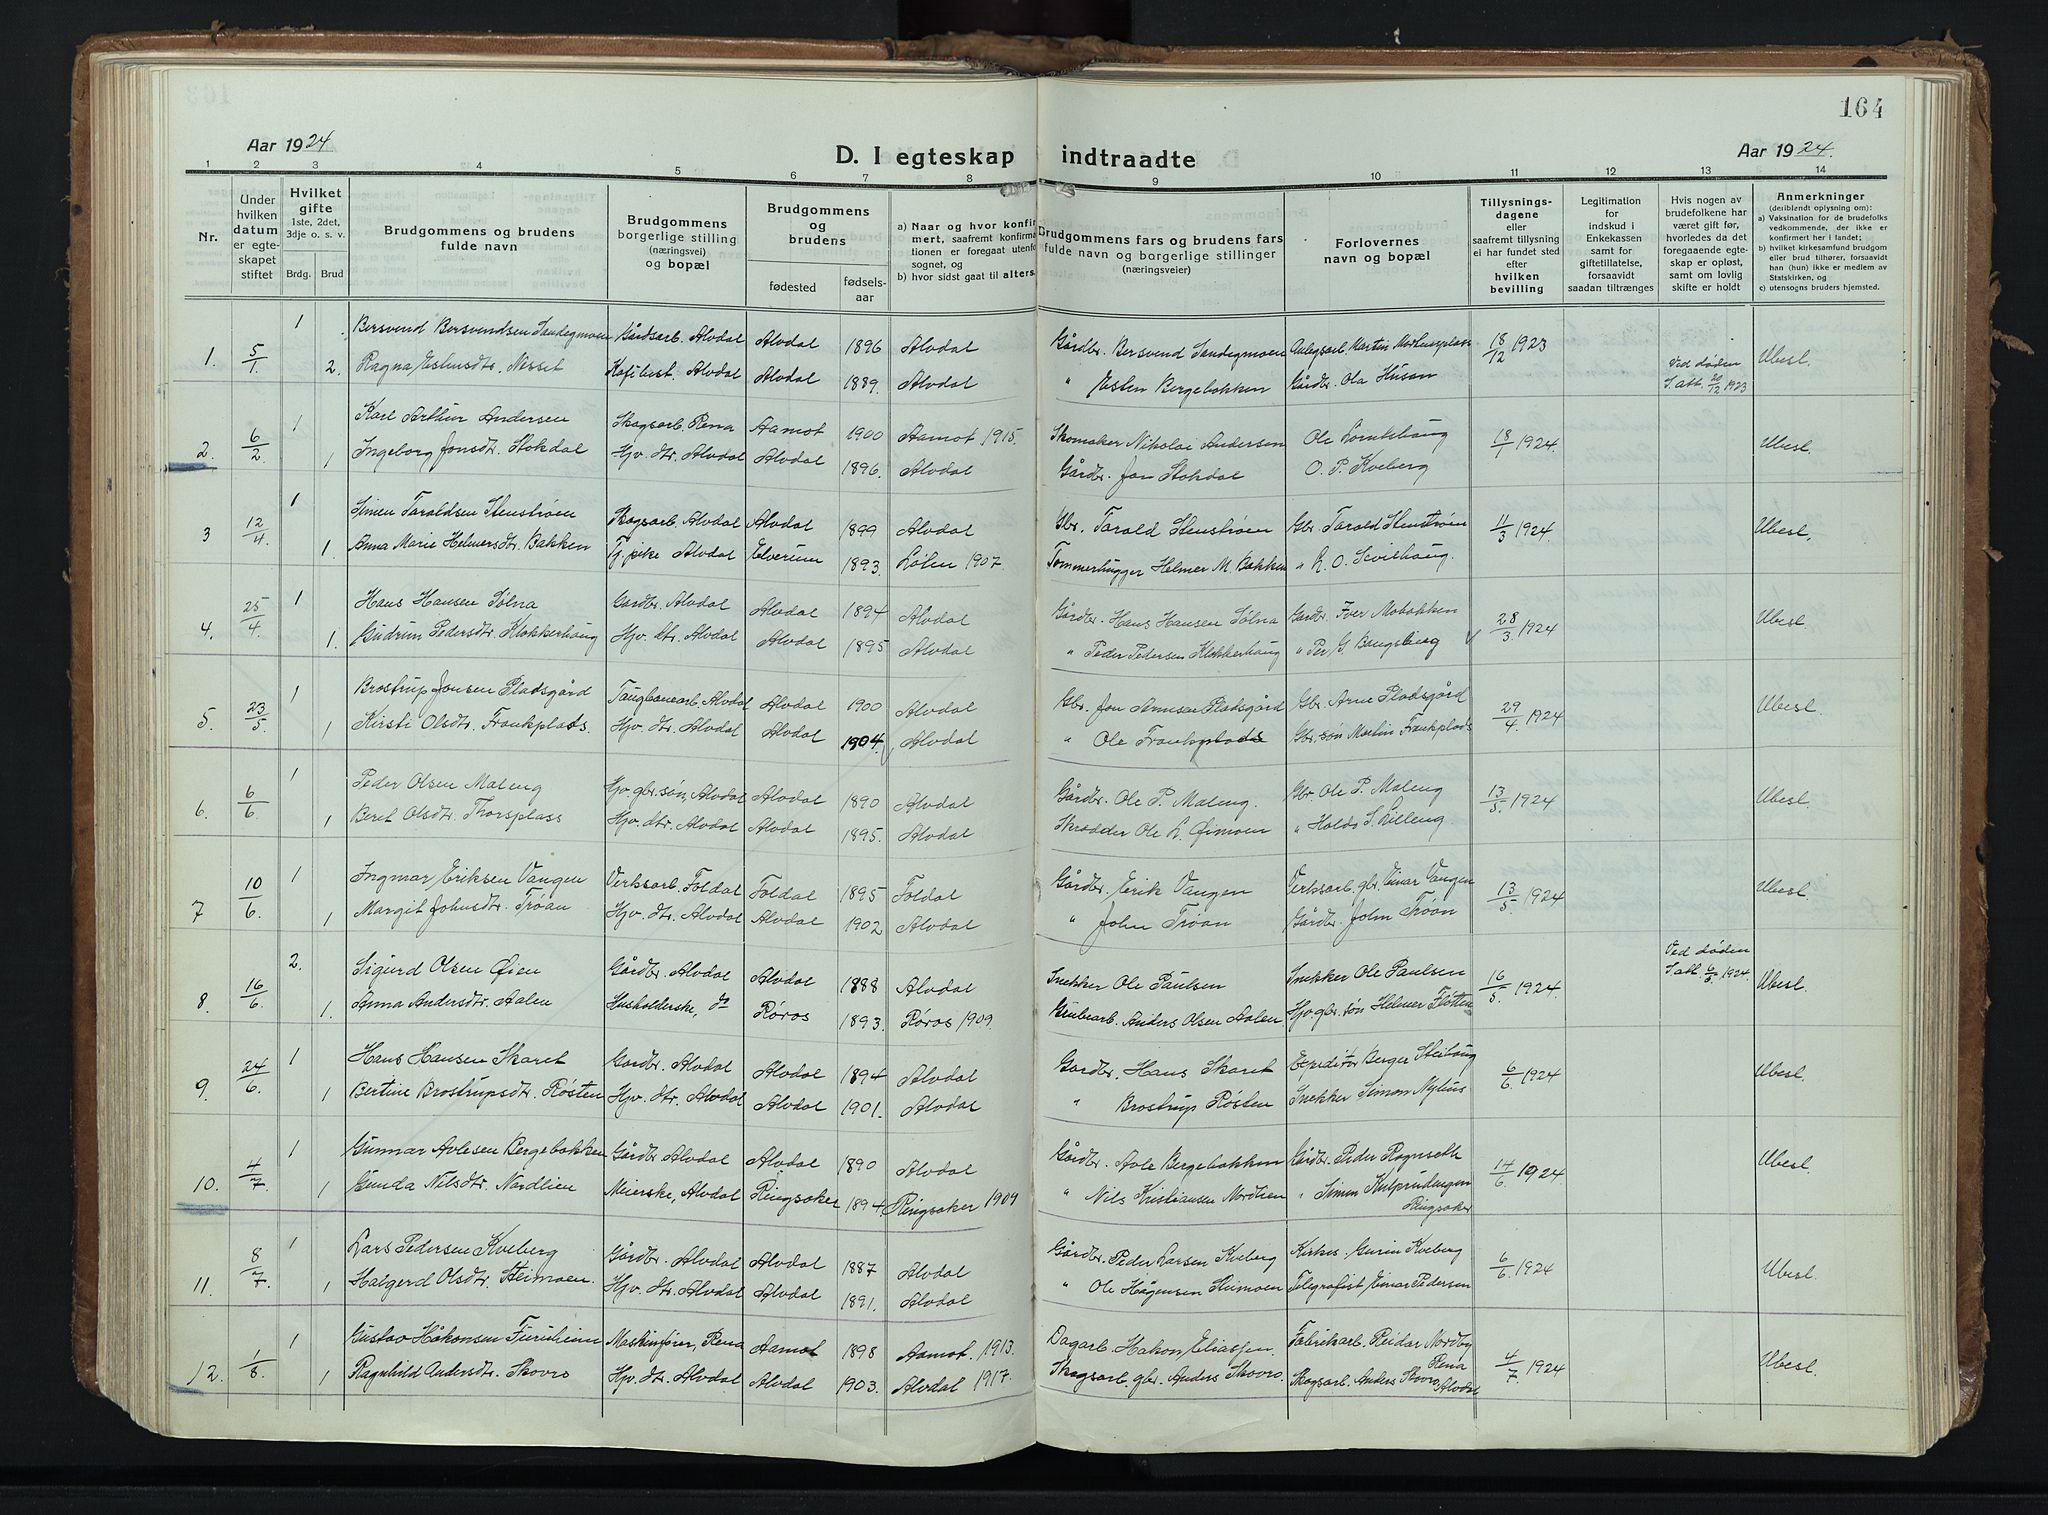 164
Aar 1924
D. I egteskap indtraadte
Aar 1924.
1 2 3 4 5 6 7 8 9 10 11 12 13 14
Nr.
Under hvilken datum er egteskapet stiftet
Hvilket gifte 1ste, 2det, 3dje o. s. v.
Brdg. Brud
Brudgommens og brudens fulde navn
Brudgommens borgerlige stilling (næringsvei) og bopæl
Brudgommens og brudens
fødested
fødselsaar
a) Naar og hvor konfirmert, saafremt konfirmationen er foregaat utenfor sognet, og
b) hvor sidst gaat til alters.
Brudgommens fars og brudens fars fulde navn og borgerlige stillinger (næringsveier)
Forlovernes navn og bopæl
Tillysningsdagene eller saafremt tillysning ei har fundet sted efter hvilken bevilling
Legitimation for indskud i Enkekassen samt for giftetillatelse, forsaavidt saadan tiltrænges
Hvis nogen av brudefolkene har været gift før, hvorledes da det foregaaende egteskap er opløst, samt om lovlig skifte er holdt
Anmerkninger (deriblandt oplysning om): a) Vaksination for de brudefolks vedkommende, der ikke er konfirmert her i landet; b) hvilket kirkesamfund brudgom eller brud tilhører, forsaavidt han (hun) ikke er medlem av Statskirken, og c) utensogns bruders hjemsted.
1. 5/1 1 Bersvend Bersvendsen Sandegmoen Gårdsarb. Alvdal Alvdal 1896 Alvdal Gårdbr. Bersvend Sandegmoen Anlegsarb. Martin 18/12 1923 Ubesl.
2. Ragna Estensdtr. Nesset Alvdal Alvdal 1889. Alvdal " Esten Bergebakken Gårdbr. Ola Husan Ved døden S. att. 20/12 1923
2. 6/2 1 Karl Arthur Andersen Skogsarb. Rena Aamot 1900 Aamot 1915. Skomaker Nikolai Andersen Ole 18/1 1924. Ubesl.
1 Ingeborg Jonsdtr. Stokdal Hjv. dtr. Alvdal Alvdal 1896. Alvdal Gårdbr. Jon Stokdal O. P. Kveberg
3 12/4 1 Simen Taraldsen Stenstrøen Skogsarb. Alvdal Alvdal 1899 Alvdal Gbr. Tarald Stenstrøen Gbr. Tarald Stenstrøen 11/3 1924. Ubesl.
1. Anna Marie Helmersdtr. Bakken Tj. pike Alvdal Elverum 1893. Løten 1907. Tømmerhugger Helmer M. Bakken
4. 25/4 1 Hans Hansen Sølna Gardbr. Alvdal Alvdal 1894 Alvdal Gårdbr. Hans Hansen Sølna Gardbr. Iver Mobakken 28/3 1924 Ubesl.
1. Gudrun Pedersdtr. Klokkerhaug Hjv. dtr. Alvdal Alvdal 1895 Alvdal " Peder Pedersen Klokkerhaug " Per G. Bangsberg
5. 23/5 1 Brostrup Jonsen Pladsgård Taugbanearb. Alvdal Alvdal 1900 Alvdal Gbr. Jon Arnesen Pladsgård Gbr. Arne Pladsgård 29/4 1924 Ubesl.
1 Kirsti Olsdtr. Frankplads. Hjv. dtr. Alvdal Alvdal 1904. Alvdal " Ole Frankplads Gbr. søn Martin Frankplads
6. 6/6 1 Peder Olsen Maleng Hjv. gbr. søn, Alvdal Alvdal 1890 Alvdal Gårdbr. Ole P. Maleng. Gbr. Ole P. Maleng 13/5. 1924 Ubesl.
1 Beret Olsdtr. Thorsplass Hjv. dtr. Alvdal Alvdal 1895. Alvdal Skrædder Ole L. Øimoen " Haldo S. Lilleng.
7 10/6. 1 Ingmar Eriksen Vangen Verksarb. Foldal Foldal 1895 Foldal Gårdbr. Erik Vangen Verksarb. gbr. Einar Vangen 13/5. 1924 Ubesl.
1 Margit Johnsdtr. Trøan Hjv. dtr. Alvdal Alvdal 1902 Alvdal " John Trøan Gårdbr. John Trøan
8. 16/6. 2. Sigurd Olsen Øien Gårdbr. Alvdal Alvdal 1888 Alvdal Snekker Ole Paulsen Snekker Ole Paulsen 16/5. 1924. Ved døden S. att. 6/5. 1924 Ubesl.
1. Anna Andersdtr. Aalen Husholderske, do Røros 1893. Røros 1909. Grubearb. Anders Olsen Aalen Hjv. gbr. søn Helmer Fløtten
9. 24/6. 1 Hans Hansen Skaret Gardbr. Alvdal Alvdal 1894 Alvdal Gardbr. Hans Skaret Expeditør Berger Steihaug 6/6 1924 Ubesl.
1 Bertine Brostrupsdtr. Røsten Hjv. dtr. Alvdal Alvdal 1901. Alvdal " Brostrup Røsten Snekker Simon Nylius
10. 4/7. 1 Gunnar Avlesen Bergebakken Gårdbr Alvdal Alvdal 1890 Alvdal Gårdbr. Avle Bergebakken Gårdbr. Peder Ragnseth 14/6. 1924 Ubesl.
1 Gunda Nilsdtr. Nordlien Meierske, Alvdal Ringsaker 1894. Ringsaker 1909 " Nils Kristiansen Nordlien " Simen Ringsaker
11. 8/7. 1 Lars Pedersen Kveberg Gårdbr. Alvdal Alvdal 1887 Alvdal Gårdbr. Peder Larsen Kveberg Kirkes. Gurin Kveberg 6/6. 1924 Ubesl.
1 Halgerd Olsdtr. Steimoen. Hjv. dtr. Alvdal Alvdal 1891. Alvdal " Ole Hågensen Steimoen Telegrafist Einar Pedersen
12. 1/8. 1 Gustav Håkonsen Furuheim Maskinfører, Rena Aamot 1898 Aamot. 1913. Dagarb. Hakon Eliassen. Fabrikarb. Reidar Nordby Rena 4/7. 1924 Ubesl.
1 Ragnhild Andersdtr. Skovro Hjv. dtr. Alvdal Alvdal 1903. Alvdal 1917. Skogsarb. gbr. Anders Skovro. Skogsarb. Anders Skovro Alvdal